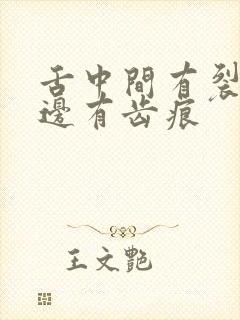 舌中間有裂
邊有齿痕
王文艷